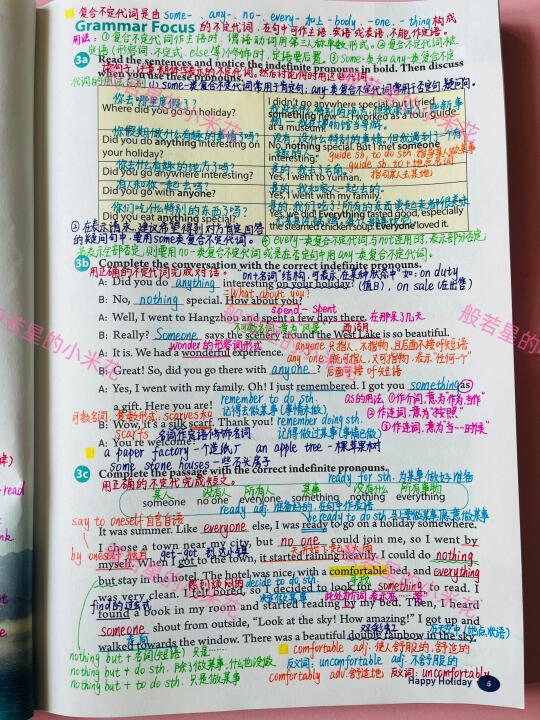 复合不定代词是由some-、any-、no-、every-加上-body、-one、-thing构成
Grammar Focus 的不定代词，在句中可作主语、宾语或表语，不能作定语。
用法：①复合不定代词作主语时，谓语动词用第三人称单数形式。②复合不定代词被
定语(形容词、不定式、else等)修饰时，定语要后置。③some-类和any-类复合不定
3a Read the sentences and notice the indefinite pronouns in bold. Then discuss
when you use these pronouns.
some-类复合不定代词常用于肯定句，any-类复合不定代词常用于否定句、疑问句。
你去哪里度假了？
Where did you go on holiday?
I didn't go anywhere special, but I tried
something new — I worked as a tour guide
at a museum.
你假期做什么有趣的事情了吗？
Did you do anything interesting on
your holiday?
No, nothing special. But I met someone
interesting.
guide sb. to do sth. 指导某人做某事
guide sb. to+地点名词
指引某人去某地
你去什么有趣的地方了吗？
Did you go anywhere interesting?
是的，我去了云南。
Yes, I went to Yunnan.
有人和你一起去吗？
Did you go with anyone?
是的，我和家人一起去的。
Yes, I went with my family.
你们吃什么特别的东西了吗？
Did you eat anything special?
Yes, we did! Everything tasted good, especially
the steamed chicken soup. Everyone loved it.
③在表示请求、建议或希望得到对方肯定回答
的疑问句中，要用some类复合不定代词。
④every-类复合不定代词与not连用时，表示部分否定
若表示全部否定，则要用no-类复合不定代词或是在否定句中用any-类复合不定代词。
3b Complete the conversation with the correct indefinite pronouns.
用正确的不定代词完成对话。
"on+名词"结构，可表示"在某种状态中"如：on duty
(值日)，on sale (在出售)
A: Did you do anything interesting on your holiday?
=What about you?
B: No, nothing special. How about you?
spend - spent
A: Well, I went to Hangzhou and spent a few days there.
在那呆了几天
不可数名词，意为"风景"
西湖
B: Really? Someone says the scenery around the West Lake is so beautiful.
wonder的形容词形式
A: It is. We had a wonderful experience.
anyone只指人，不指物，且后面不接of短语
any one 既可指人，又可指物，表示"任何一个"
后面可接of短语
B: Great! So, did you go there with anyone?
A: Yes, I went with my family. Oh! I just remembered. I got you something as
a gift. Here you are!
remember to do sth.
记得去做某事(事情未做)
as的用法：①作介词，意为"作为，当作"
②作连词，意为"按照"
③作连词，意为"当…时候"
可数名词，复数形式：scarves和
scarfs
B: Wow, it's a silk scarf. Thank you!
remember doing sth.
记得做过某事(事情已做)
名词作定语修饰名词
A: You're welcome!
a paper factory 一个造纸厂 an apple tree 一棵苹果树
some stone houses 一些石头房子
3c Complete the passage with the correct indefinite pronouns.
用正确的不定代词完成短文。
ready for sth. 为某事做好准备
某人 没有人 所有人 某事 没有什么 所有事物
someone no one everyone something nothing everything
ready adj. 准备好的，在句中作表语
say to oneself 自言自语
be ready to do sth.
It was summer. Like everyone else, I was ready to go on a holiday somewhere.
I chose a town near my city, but no one could join me, so I went by
by oneself 独自
get-got 到达小镇
天开始下起了大雨
myself. When I got to the town, it started raining heavily. I could do nothing
but stay in the hotel. The hotel was nice, with a comfortable bed, and everything
感到烦闷的 decide to do sth.
寻找
was very clean. I felt bored, so I decided to look for something to read. I
find的过去式
found a book in my room and started reading by my bed. Then, I heard
someone shout from outside, "Look at the sky! How amazing!" I got up and
走向
双彩虹
walked towards the window. There was a beautiful double rainbow in the sky.
nothing but + 名词(短语) 只是……
nothing but + do sth. 除了做某事，什么也没做
nothing but + to do sth. 只是做某事
comfortable adj. 使人舒服的，舒适的
反义词：uncomfortable adj. 不舒服的
comfortably adv. 舒适地 反义词：uncomfortably
Happy Holiday 5
般若星的小米花
read